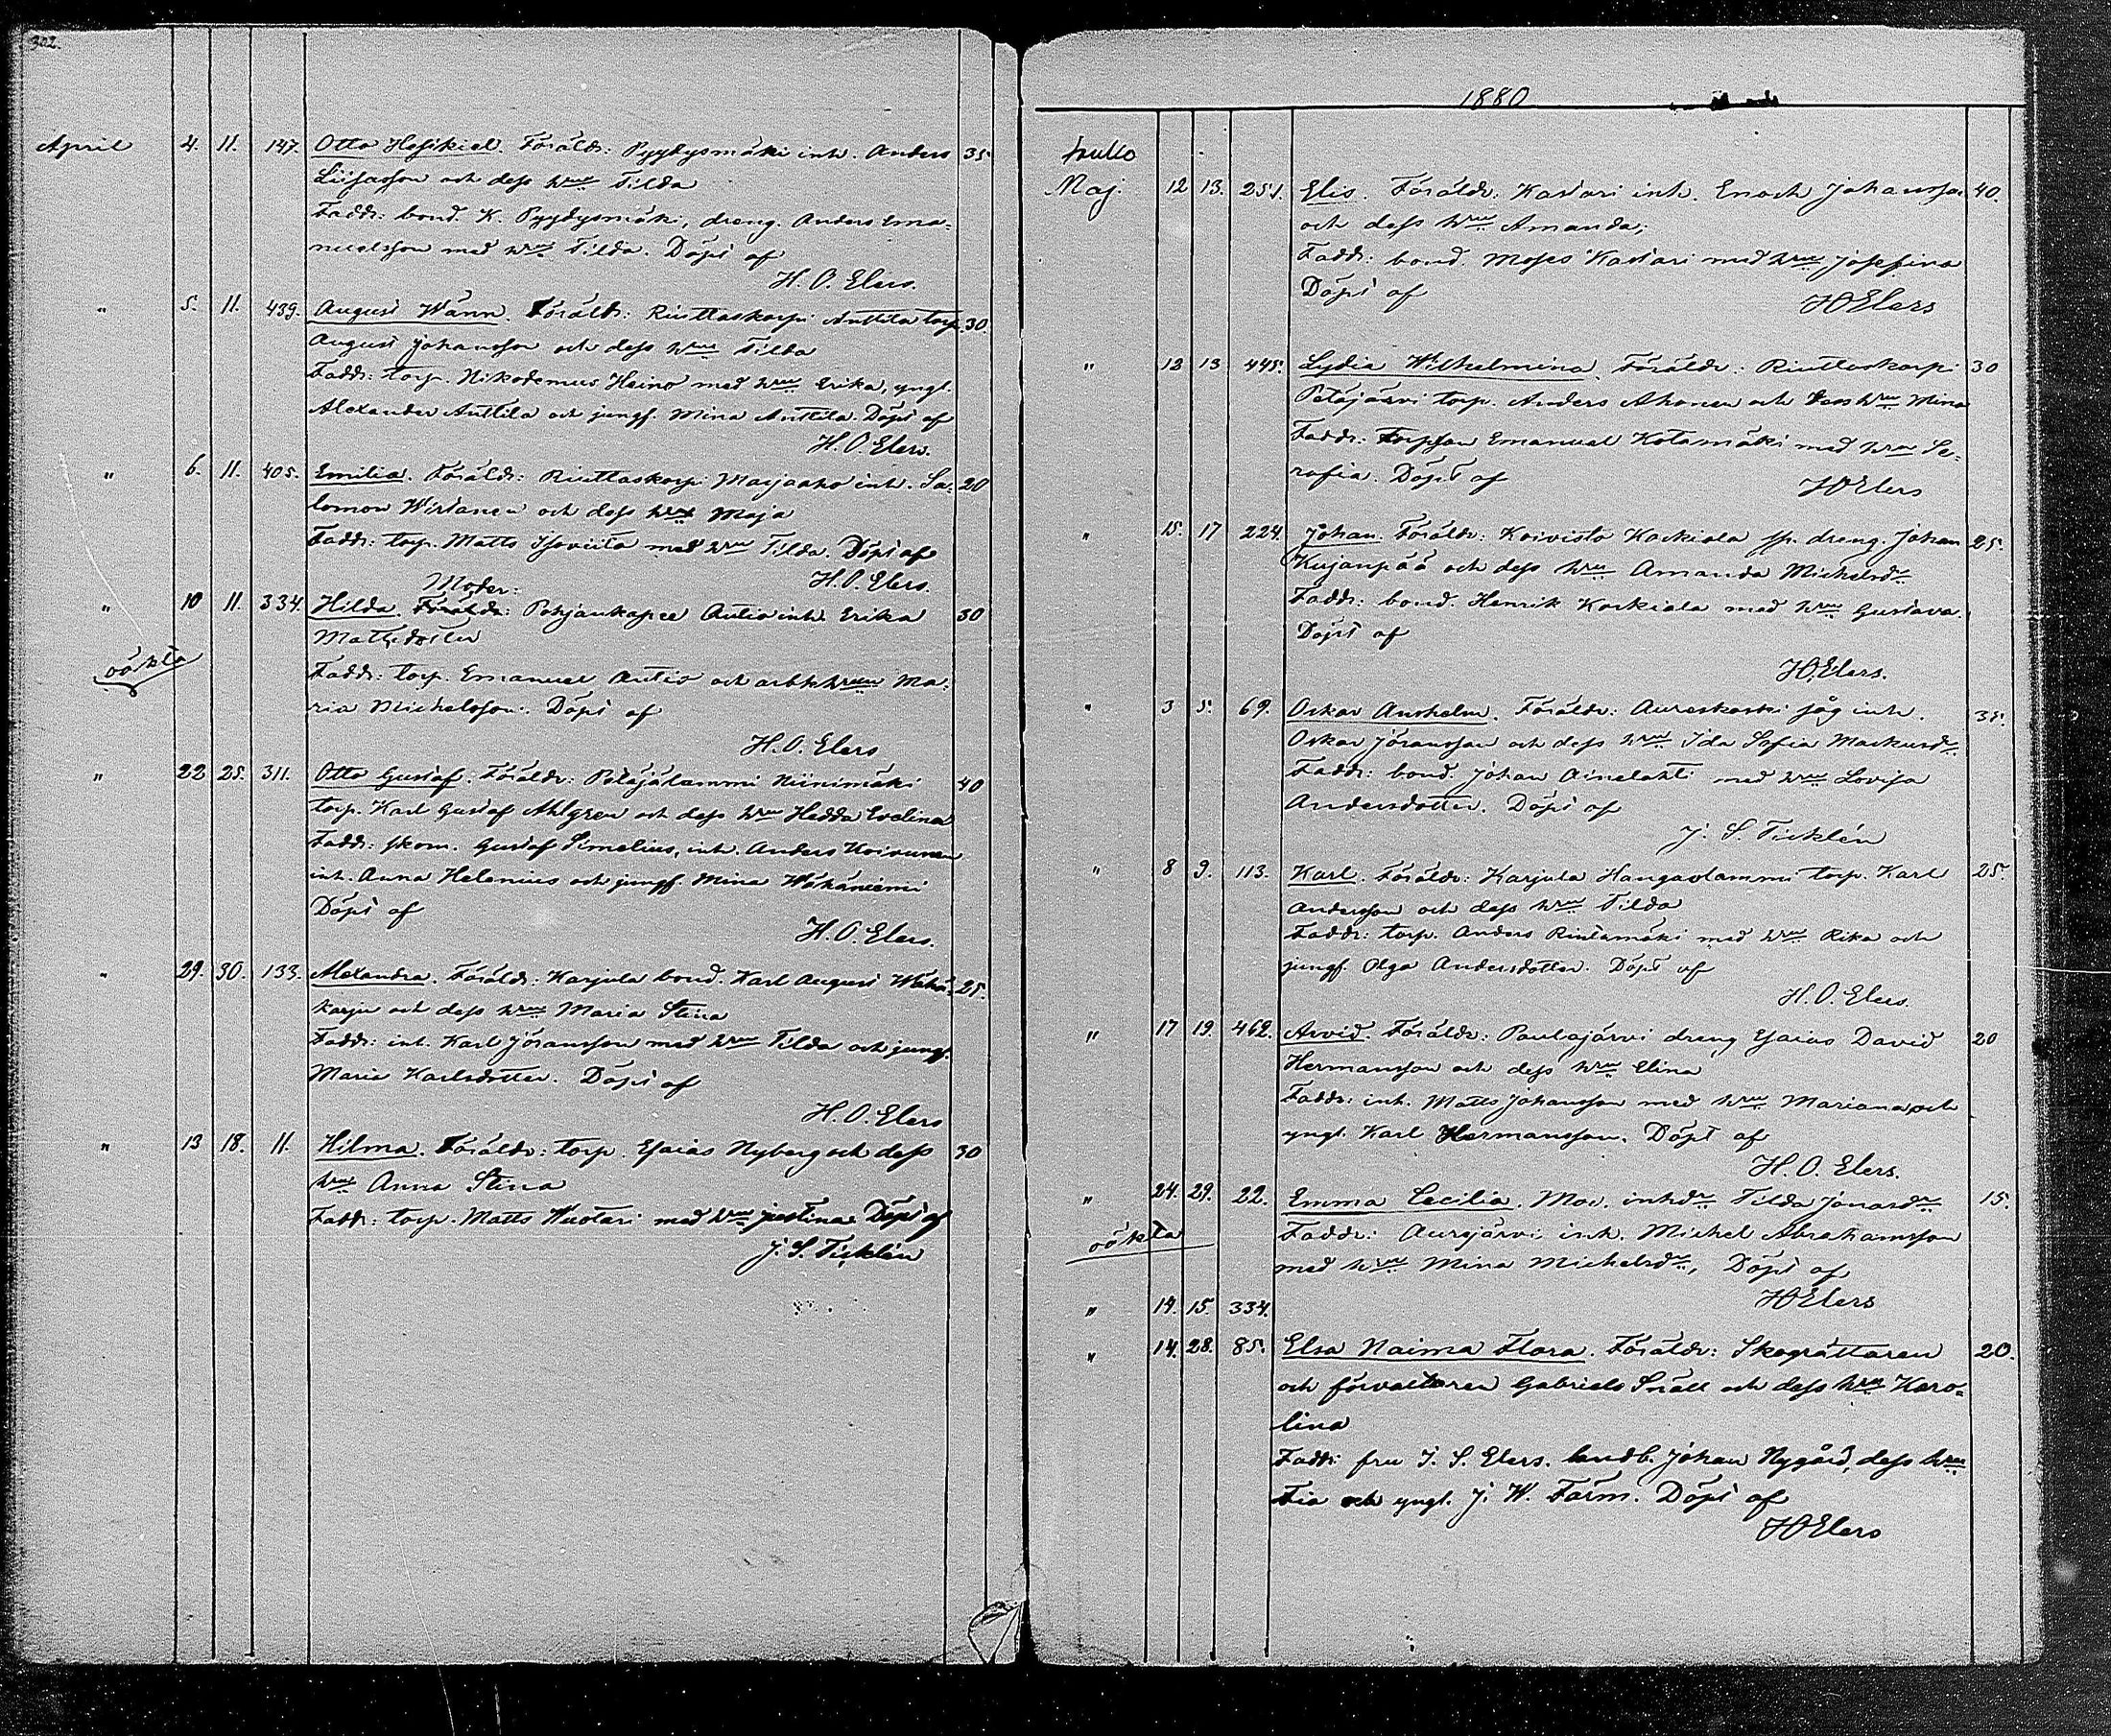 302.
April 4. 11. 147. Otto Hesikiel. Föräldr: Pyydysmäki inh. Anders 35
Liisasson och dess hru Tilda
Faddr: bond. K. Pyydysmäki, dreng. Anders Ema-
nuelsson med hru Tilda. Döpt af
H. O. Elers.
" 5. 11. 439. August Wänn. Föräldr: Riuttaskorpi Anttila torp. 30.
August Johansson och dess hru Tilda
Faddr: torp. Nikodemus Heino med hru Erika, yngl.
Alexander Anttila och jungf. Mina Anttila. Döpt af
H. O. Elers.
" 6. 11. 405. Emilia. Föräldr: Riuttaskorpi Marjaaho inh. Sa- 20
lomon Wirtanen och dess hru Maja
Faddr: torp. Matts Isoviita med hru Tilda. Döpt af
H. O. Elers.
Moder:
" 10 11. 334. Hilda. Föräldr: Pohjankapee Autio inh. Erika 30
Mattsdotter
oäkta
Faddr: torp. Emanuel Autio och arbk hrun Ma-
ria Michelsson. Döpt af
H. O. Elers
" 22 25. 311. Otto Gustaf. Föräldr: Petäjälammi Niinimäki 40
torp. Karl Gustaf Ahlgren och dess hru Hedda Evelina
Faddr: skom. Gustaf Simelius, inh. Anders Koivunen
inh. Anna Helenius och jungf. Mina Wähäniemi
Döpt af
H. O. Elers.
" 29. 30. 133. Alexandra. Föräldr: Karjula bond. Karl August Wähä- 25.
karju och dess hru Maria Stina
Faddr: inh. Karl Jöransson med hru Tilda och jungf.
Maria Karlsdotter. Döpt af
H. O. Elers
" 13 18. 11. Hilma. Föräldr: torp. Esaias Nyberg och dess 30
hru Anna Stina
Faddr: torp. Matts Huotari med hru Justina. Döpt af
J. S. Ticklén
1880
Maj. 12 13. 251. Elis. Föräldr: Kastari inh. Enoch Johansson 40.
och dess hru Amanda;
Faddr: bond. Moses Kastari med hru Josefina
Döpt af HOElers
" 12 13 445. Lydia Wilhelmina. Föräldr: Riuttaskorpi 30
Petäjärvi torp. Anders Ahonen och dess hru Mina
Faddr: Torpson Emanuel Kotamäki med hru Se-
rafia. Döpt af HOElers
" 15. 17 224. Johan. Föräldr: Koivisto Koskiala sp. dreng. Johan 25.
Kujanpää och dess hru Amanda Michelsdr
Faddr: bond. Henrik Koskiala med hru Gustava.
Döpt af
HOElers.
" 3 5. 69. Oskar Anshelm. Föräldr: Aureskoski såg inh. 35.
Oskar Jöransson och dess hru Ida Sofia Markusdr
Faddr: bond. Johan Ainelahti med hru Lovisa
Andersdotter. Döpt af
J. S. Ticklén
" 8 9. 113. Karl. Föräldr: Karjula Hangaslammi torp. Karl 25.
Andersson och dess hru Tilda
Faddr: torp. Anders Rintamäki med hru Rika och
jungf. Olga Andersdotter. Döpt af
H. O. Elers.
" 17 19. 462. Arvid. Föräldr: Poulajärvi dreng Esaias David 20
Hermansson och dess hru Elina
Faddr: inh. Matts Johansson med hru Mariana och
yngl. Karl Hermansson. Döpt af
H. O. Elers.
" 24. 29. 22. Emma Cecilia. Mod. inhdr Tilda Jonasdr 15.
oäkta Faddr: Aurejärvi inh. Michel Abrahamsson
med hru Mina Michelsdr, Döpt af
HOElers
" 14. 15. 334.
" 14. 28. 85. Elsa Naima Flora. Föräldr: Skogrättaren 20.
och förvaltaren Gabriels Snäll och dess hru Karo-
lina
Faddr: fru J. S. Elers. landb. Johan Nygård, dess hru
Fia och yngl. J. W. Färm. Döpt af
HOElers